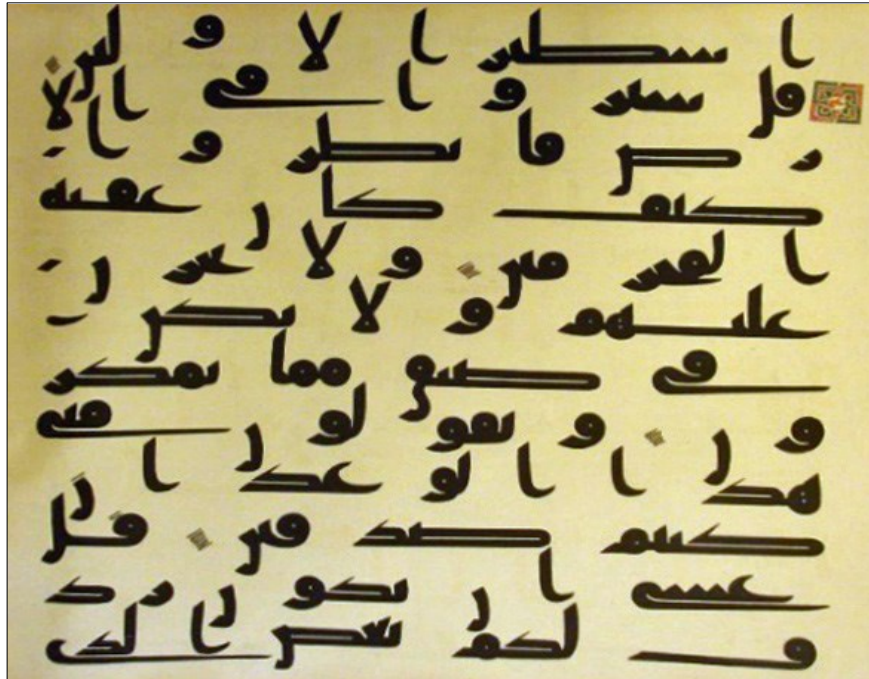 اسطير الاولين
قل سيروا في الا
رض فانظروا
كيف كان عقبة
المجرمين ولا تحزن
عليهم ولا تكن
في ضيق مما يمكر
ون ويقولون متى
هذا الوعد ان
كنتم صدقين قل
عسى ان يكون رد
ف لكم بعض الذي